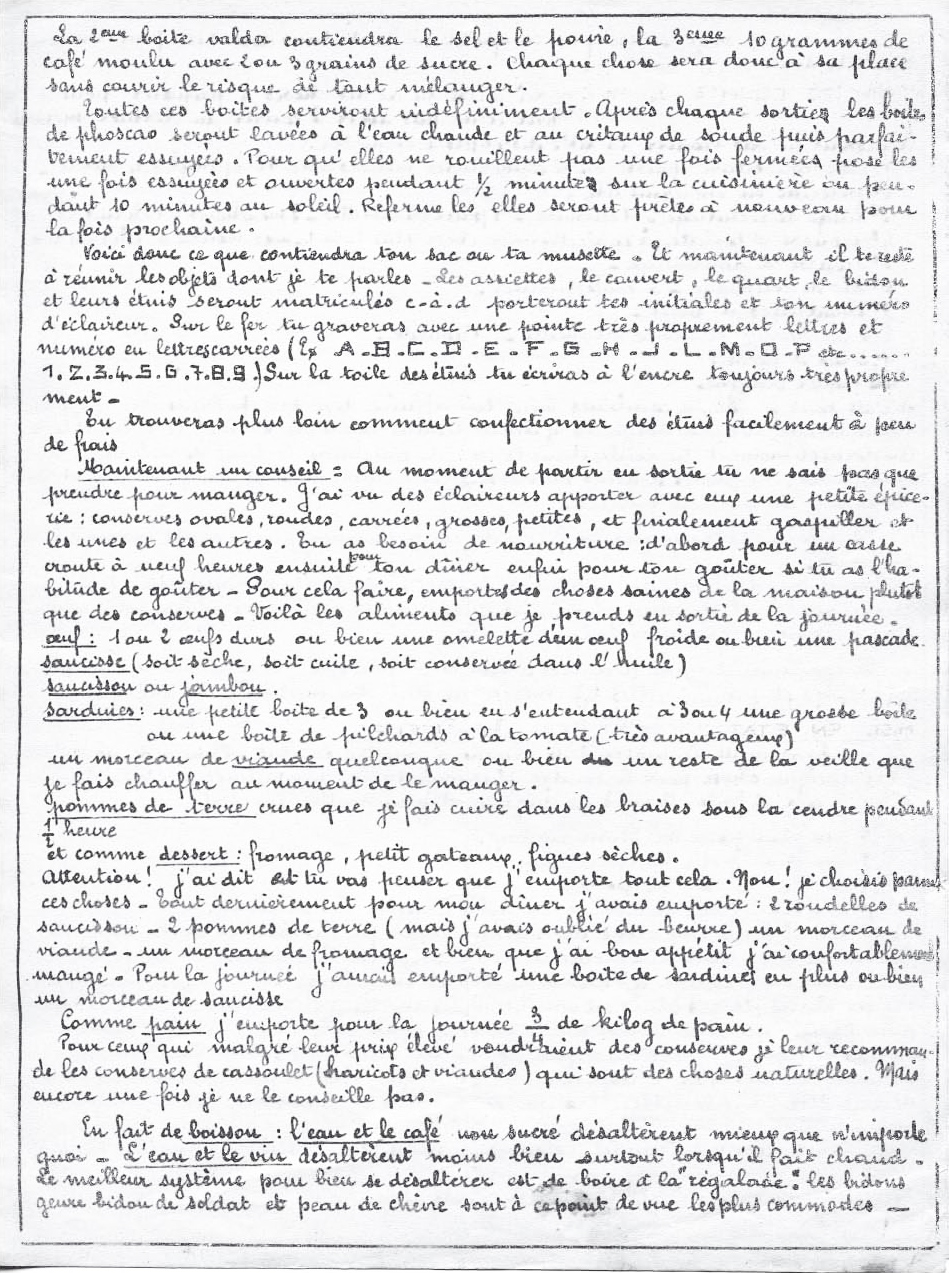 La 2eme boite valda contiendra le sel et le poivre, la 3eme 10 grammes de
café moulu avec 2 ou 3 grains de sucre. Chaque chose sera donc à sa place
sans courir le risque de tout mélanger.
Toutes ces boites serviront indéfiniment. Après chaque sortie, les boites
de phoscao seront lavées à l'eau chaude et au cristaux de soude puis parfai-
tement essuyées. Pour qu'elles ne rouillent pas une fois fermées, pose les
une fois essuyées et ouvertes pendant ½ minute sur la cuisinière ou pen-
dant 10 minutes au soleil. Referme les elles seront prêtes à nouveau pour
la fois prochaine.
Voici donc ce que contiendra ton sac ou ta musette - Et maintenant il te reste
à réunir les objets dont je te parles - Les assiettes, le couvert, le quart, le bidon
et leurs étuis seront matriculés c-à-d porteront tes initiales et ton numéro
d'éclaireur. Sur le fer tu graveras avec une pointe très proprement lettres et
numéro en lettres carrées (Ex A.B.C.D.E.F.G.H.J.L.M.O.P etc.......
1.2.3.4.5.6.7.8.9.) Sur la toile des étuis tu écriras à l'encre toujours très propre
ment -
Tu trouveras plus loin comment confectionner des étuis facilement à peu
de frais
Maintenant un conseil = Au moment de partir en sortie tu ne sais pas que
prendre pour manger. J'ai vu des éclaireurs apporter avec eux une petite épice-
rie : conserves ovales, rondes, carrées, grosses, petites, et finalement gaspiller et
les unes et les autres. Tu as besoin de nourriture : d'abord pour un casse
croute à neuf heures ensuite pour ton dîner enfin pour ton goûter si tu as l'ha-
bitude de goûter - Pour cela faire, emportes des choses saines de la maison plutôt
que des conserves - Voilà les aliments que je prends en sortie de la journée -
œuf : 1 ou 2 œufs durs ou bien une omelette d'un œuf froide ou bien une pascade
saucisse (soit sèche, soit cuite, soit conservée dans l'huile)
saucisson ou jambon.
sardines : une petite boite de 3 ou bien en s'entendant à 3 ou 4 une grosse boîte
ou une boîte de pilchards à la tomate (très avantageux)
un morceau de viande quelconque ou bien un reste de la veille que
je fais chauffer au moment de le manger.
pommes de terre crues que je fais cuire dans les braises sous la cendre pendant
1/2 heure
et comme dessert : fromage, petit gateaux, figues sèches.
Attention ! j'ai dit et tu vas penser que j'emporte tout cela. Non ! je choisis parmi
ces choses - Tout dernièrement pour mon dîner j'avais emporté : 2 rondelles de
saucisson - 2 pommes de terre (mais j'avais oublié du beurre) un morceau de
viande - un morceau de fromage et bien que j'ai bon appétit j'ai confortablement
mangé - Pour la journée j'aurai emporté une boite de sardines en plus ou bien
un morceau de saucisse
Comme pain j'emporte pour la journée 3/4 de kilog de pain.
Pour ceux qui malgré leur prix élevé voudraient des conserves je leur recomman-
de les conserves de cassoulet (haricots et viandes) qui sont des choses naturelles. Mais
encore une fois je ne le conseille pas.
En fait de boisson : l'eau et le café non sucré désaltèrent mieux que n'importe
quoi - L'eau et le vin désaltèrent moins bien surtout lorsqu'il fait chaud -
Le meilleur système pour bien se désaltérer est de boire à la "régalade" : les bidons
genre bidon de soldat et peau de chèvre sont à ce point de vue les plus commodes -